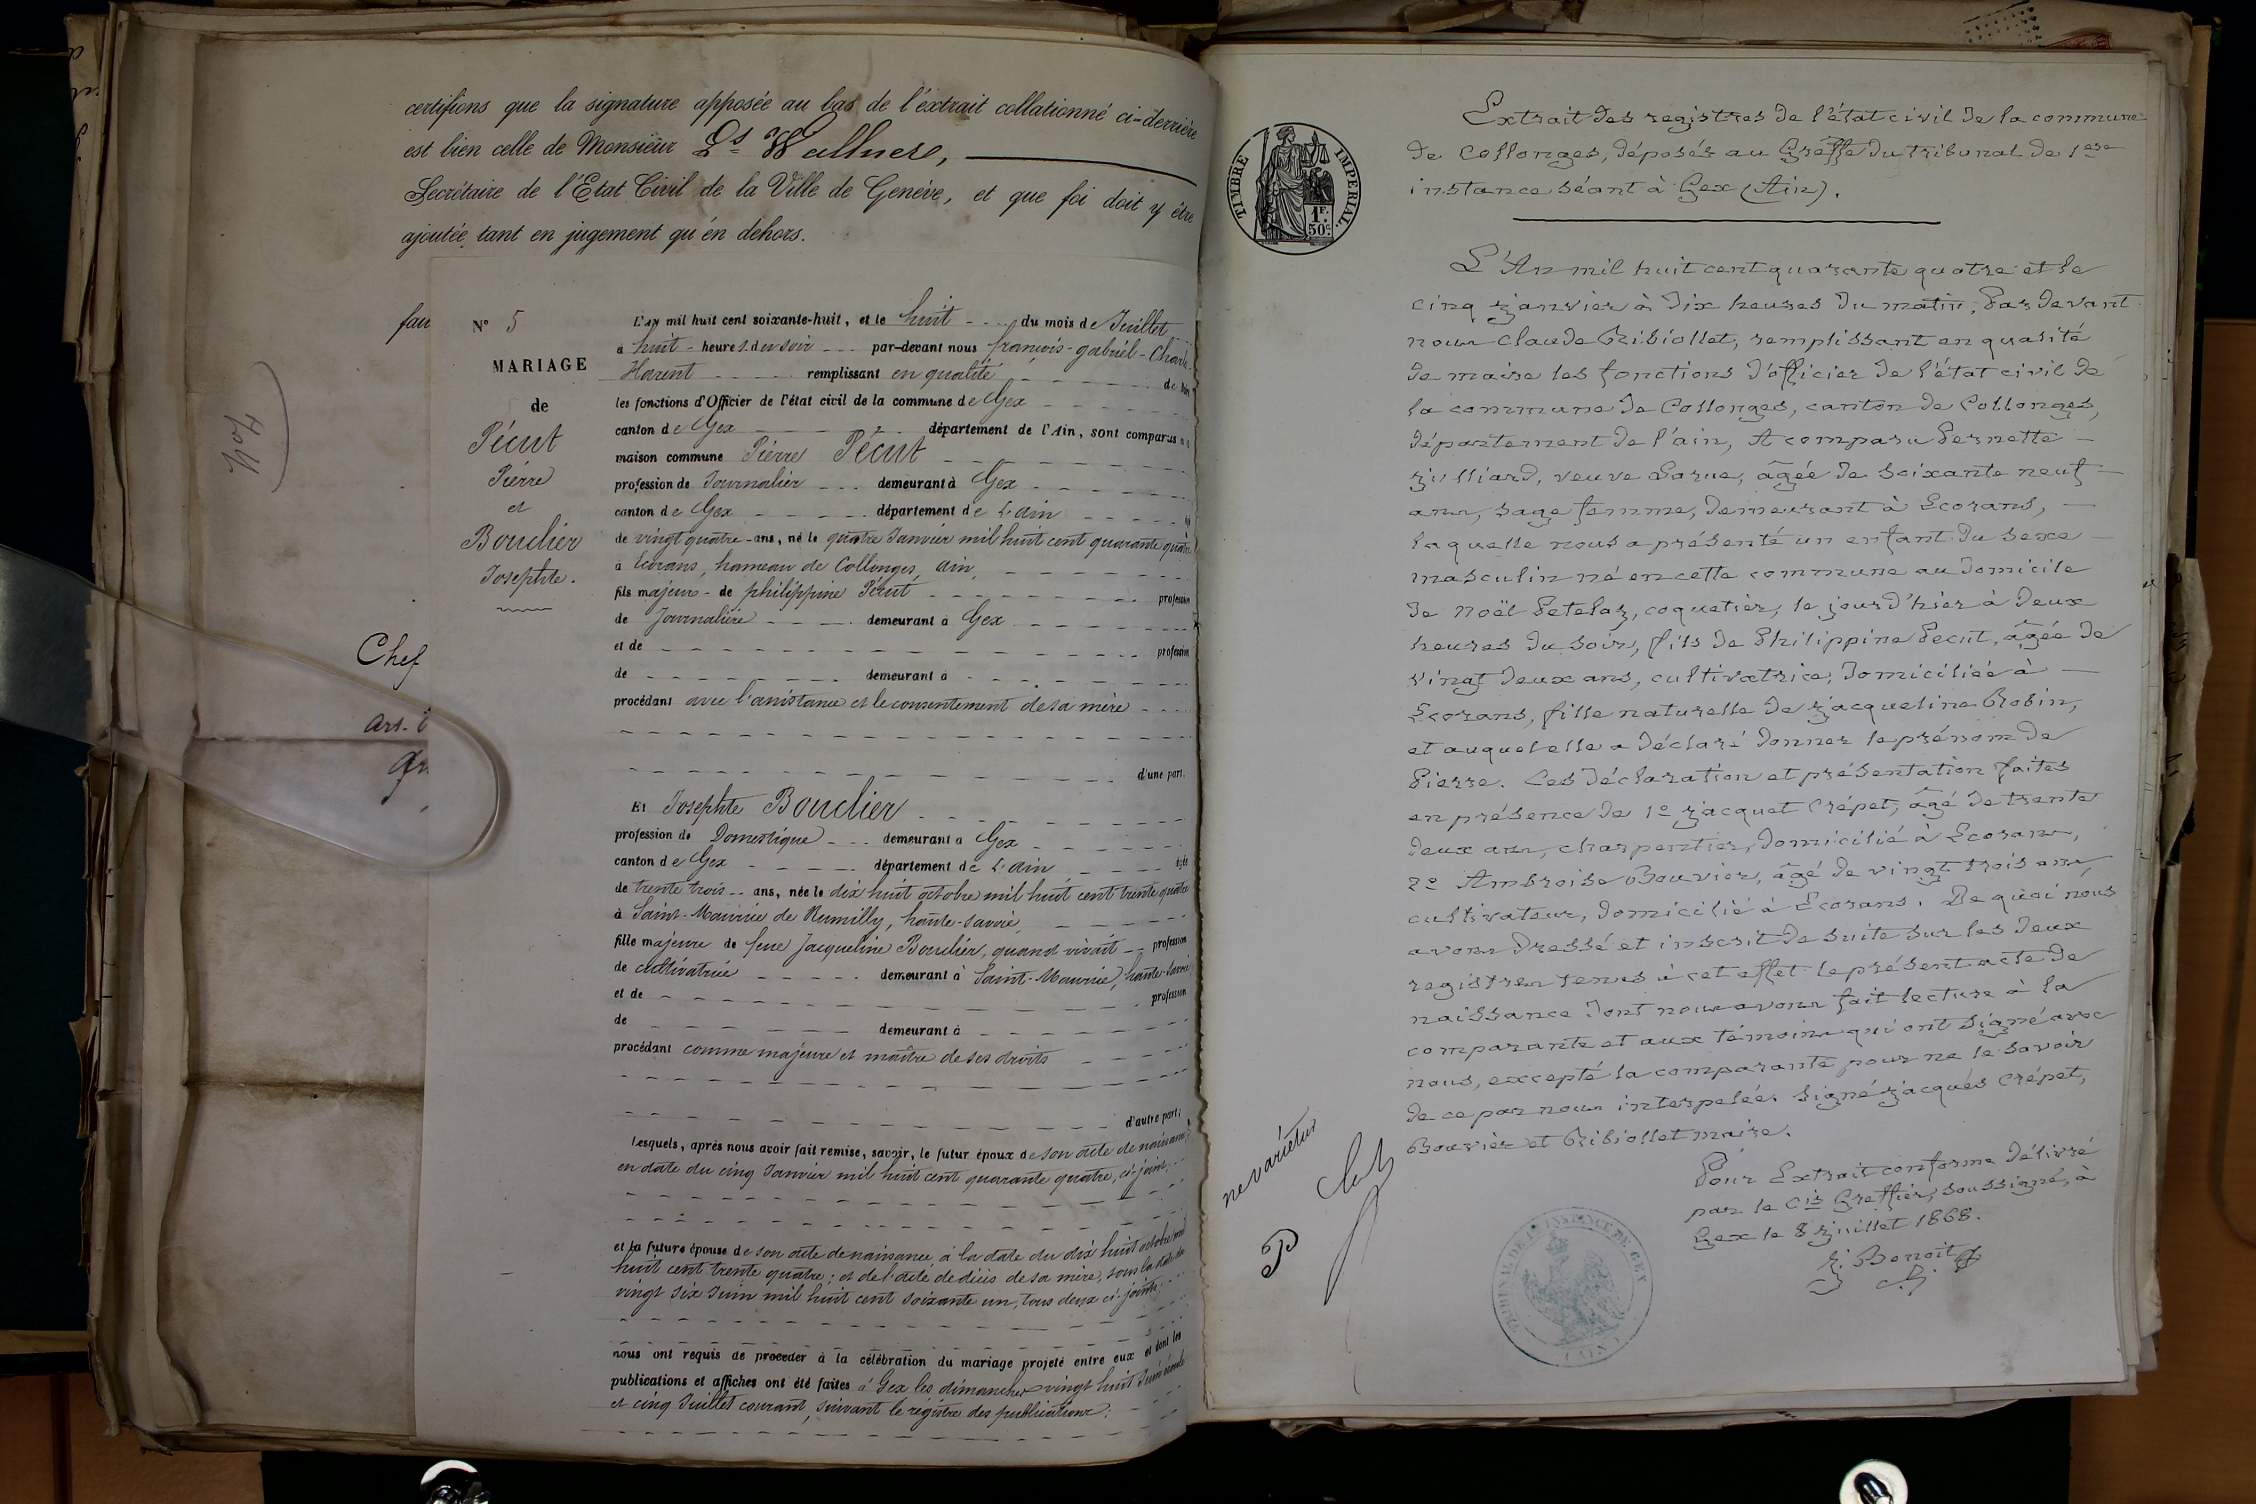 certifions que la signature apposée au bas de l'éxtrait collationné ci-derrière
est bien celle de Monsieur Ls Wallner,
Secrétaire de l'Etat Civil de la Ville de Genève, et que foi doit y être
ajoutée tant en jugement qu'en dehors.
fau
Chef
art. 6
N° 5
MARIAGE
de
Pécut
Pierre
et
Bouclier
Josephte.
L'an mil huit cent soixante-huit, et le huit du mois de Juillet
à huit heures du soir par-devant nous françois-gabriel-Charles
Harent remplissant en qualité de
les fonctions d'Officier de l'état civil de la commune de Gex
canton de Gex département de l'Ain, sont comparus
maison commune Pierre Pécut
profession de Journalier demeurant à Gex
canton de Gex département de L'ain
de vingt quatre ans, né le quatre Janvier mil huit cent quarante quatre
à Ecorans, hameau de Collonges, ain,
fils majeur de philippine Pécut profession
de Journalière demeurant à Gex
et de profession
de demeurant à
procédant avec l'assistance et le consentement de sa mère
d'une part.
Et Josephte Bouclier
profession de Domestique demeurant à Gex
canton de Gex département de L'ain âgée
de trente trois ans, née le dix huit octobre mil huit cent trente quatre
à Saint-Maurice de Rumilly, haute-savoie,
fille majeure de feue Jacqueline Bouclier, quand vivait profession
de cultivatrice demeurant à Saint-Maurice, haute-savoie
et de profession
de demeurant à
procédant comme majeure et maître de ses droits
d'autre part;
Lesquels, après nous avoir fait remise, savoir, le futur époux de son acte de naissance
en date du cinq Janvier mil huit cent quarante quatre, ci-joint;
et la future épouse de son acte de naissance, à la date du dix huit octobre mil
huit cent trente quatre; et de l'acte de décès de sa mère, sous la date du
vingt six Juin mil huit cent soixante un, tous deux ci-joints;
nous ont requis de procéder à la célébration du mariage projeté entre eux et dont les
publications et affiches ont été faites à Gex les dimanches vingt huit Juin
et cinq Juillet courant, suivant le régistre des publications;
TIMBRE IMPERIAL.
1F.
50c.
Extrait des registres de l'état civil de la commune
de Collonges, déposés au Greffe du tribunal de 1ere
instance séant à Gex (Ain).
L'An mil huit cent quarante quatre et le
cinq janvier à dix heures du matin, Par devant
nous Claude Bribiollet, remplissant en qualité
de maire les fonctions d'officier de l'état civil de
la commune de Collonges, canton de Collonges,
département de l'ain, A comparu Pernette
Julliard, veuve Larue, âgée de soixante neuf
ans, sage femme, demeurant à Ecorans,
laquelle nous a présenté un enfant du sexe
masculin né en cette commune au domicile
de Noël Petelaz, coquetier, le jour d'hier à deux
heures du soir, fils de Philippine Pecut, âgée de
vingt deux ans, cultivatrice, domiciliée à
Ecorans, fille naturelle de Jacqueline Robin,
et auquel elle a déclaré donner le prénom de
Pierre. Ces déclaration et présentation faites
en présence de 1° Jacquet Crépet, âgé de trente
deux ans, charpentier, domicilié à Ecorans,
2° Ambroise Bouvier, âgé de vingt trois ans,
cultivateur, domicilié à Ecorans. De quoi nous
avons dressé et inscrit de suite sur les deux
registres tenus à cet effet le présent acte de
naissance dont nous avons fait lecture à la
comparante et aux témoins qui ont signé avec
nous, excepté la comparante pour ne le savoir
de ce par nous interpelée. Signé Jacques Crépet,
Bouvier et Bribiollet maire.
Pour Extrait conforme délivré
par le Cis Greffier, soussigné, à
Gex le 8 juillet 1868.
J. Benoit
ne varietur